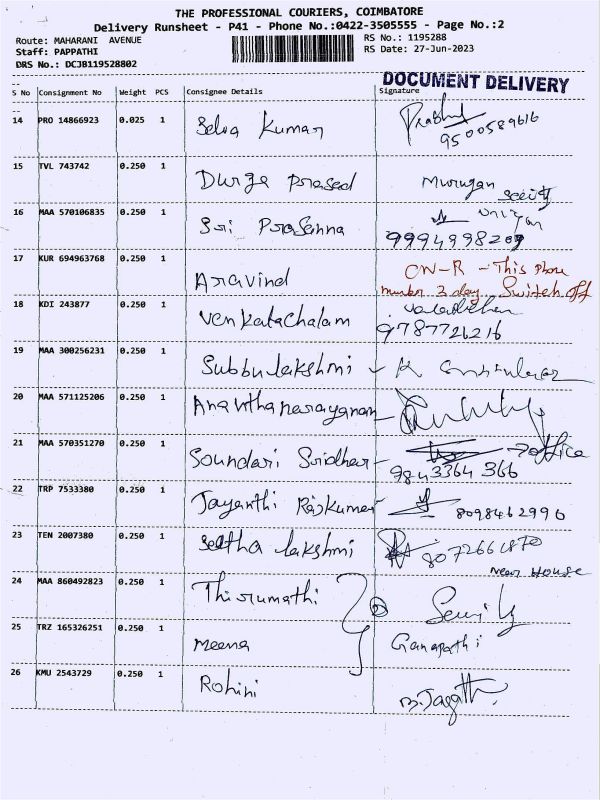 THE PROFESSIONAL COURIERS, COIMBATORE
Delivery Runsheet - P41 - Phone No.:0422-3505555 - Page No.:2
Route: MAHARANI AVENUE
RS No.: 1195288
Staff: PAPPATHI
RS Date: 27-Jun-2023
DRS No.: DCJB119528802
DOCUMENT DELIVERY
S No Consignment No Weight PCS Consignee Details Signature
14 PRO 14866923 0.025 1 Selva Kumar Prabhu
9500589616
15 TVL 743742 0.250 1 Durga Prasad Murugan
16 MAA 570106835 0.250 1 Sri Prasanna
9994998209
17 KUR 694963768 0.250 1 Aravind CN-R - This phone
number 3 day Switch off
18 KDI 243877 0.250 1 Venkatachalam
9787726216
19 MAA 300256231 0.250 1 Subbulakshmi
20 MAA 571125206 0.250 1 Ananthanarayanan
21 MAA 570351270 0.250 1 Soundari Sridhar office
9843364366
22 TRP 7533380 0.250 1 Jayanthi Rajkumar 8098462990
23 TEN 2007380 0.250 1 Seetha lakshmi
Near House
24 MAA 860492823 0.250 1 Thirumathi
25 TRZ 165326251 0.250 1 Meena Ganapathi
26 KMU 2543729 0.250 1 Rohini